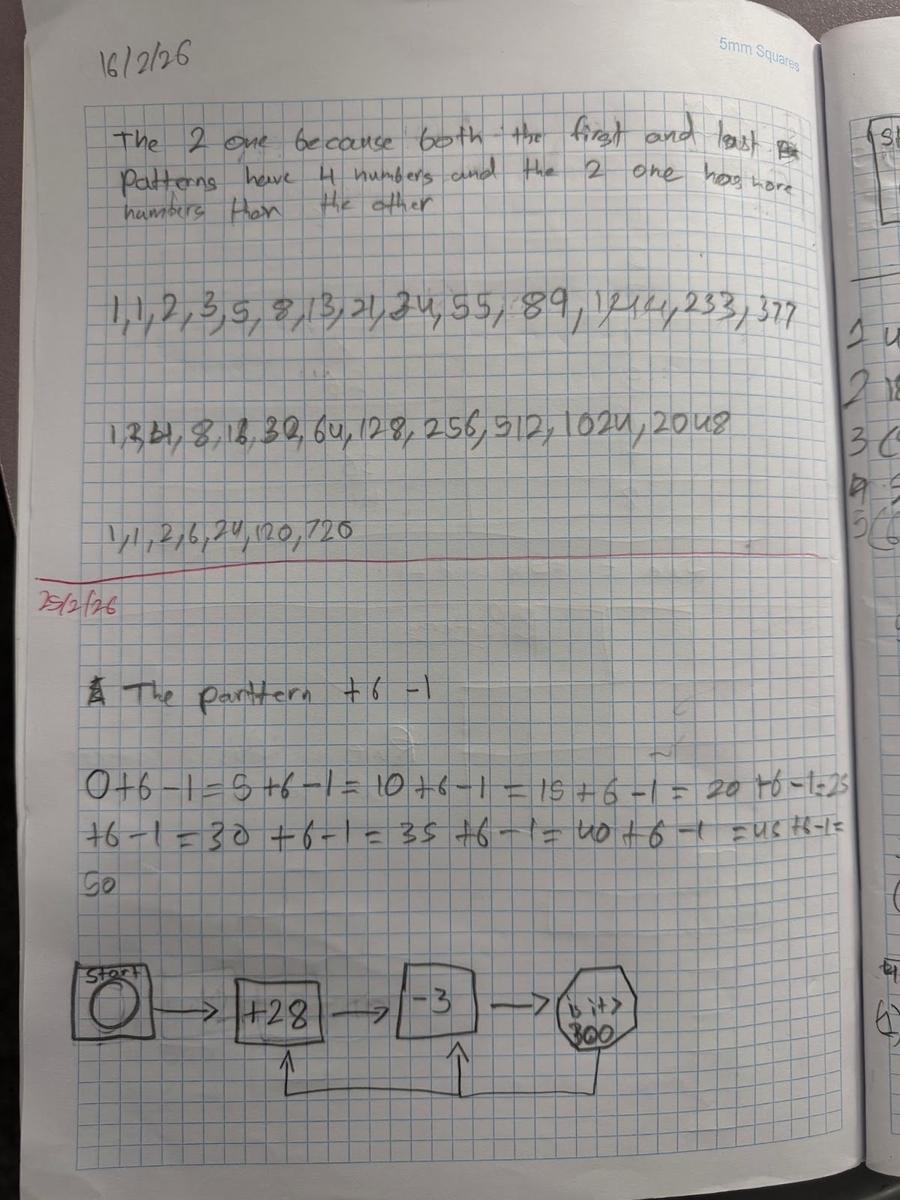 16/2/26
5mm Squares
The 2 one because both the first and last
patterns have 4 numbers and the 2 one has more
numbers than the other
1,1,2,3,5,8,13,21,34,55,89,144,233,377
1,2,4,8,16,32,64,128,256,512,1024,2048
1,1,2,6,24,120,720
25/2/26
The parttern +6 -1
0+6-1=5+6-1=10+6-1=15+6-1=20+6-1=25
+6-1=30+6-1=35+6-1=40+6-1=45+6-1=
50
Start
+28
-3
is it>
300
1
2
3
4
5